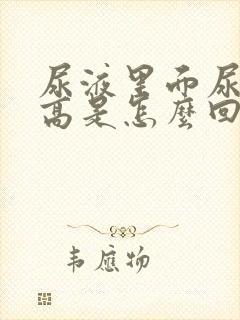 尿液里而尿
高是怎麼回
韦應物